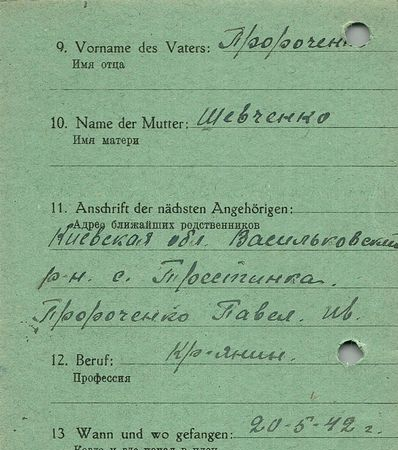 9. Vorname des Vaters: Пророченко
Имя отца
10. Name der Mutter: Шевченко
Имя матери
11. Anschrift der nächsten Angehörigen:
Адрес ближайших родственников
Киевская обл. Васильковский
р-н. с.
Пророченко Павел. Ив.
12. Beruf: Кр-янин.
Профессия
13 Wann und wo gefangen: 20-5-42 г.
Когда и где попал в плен